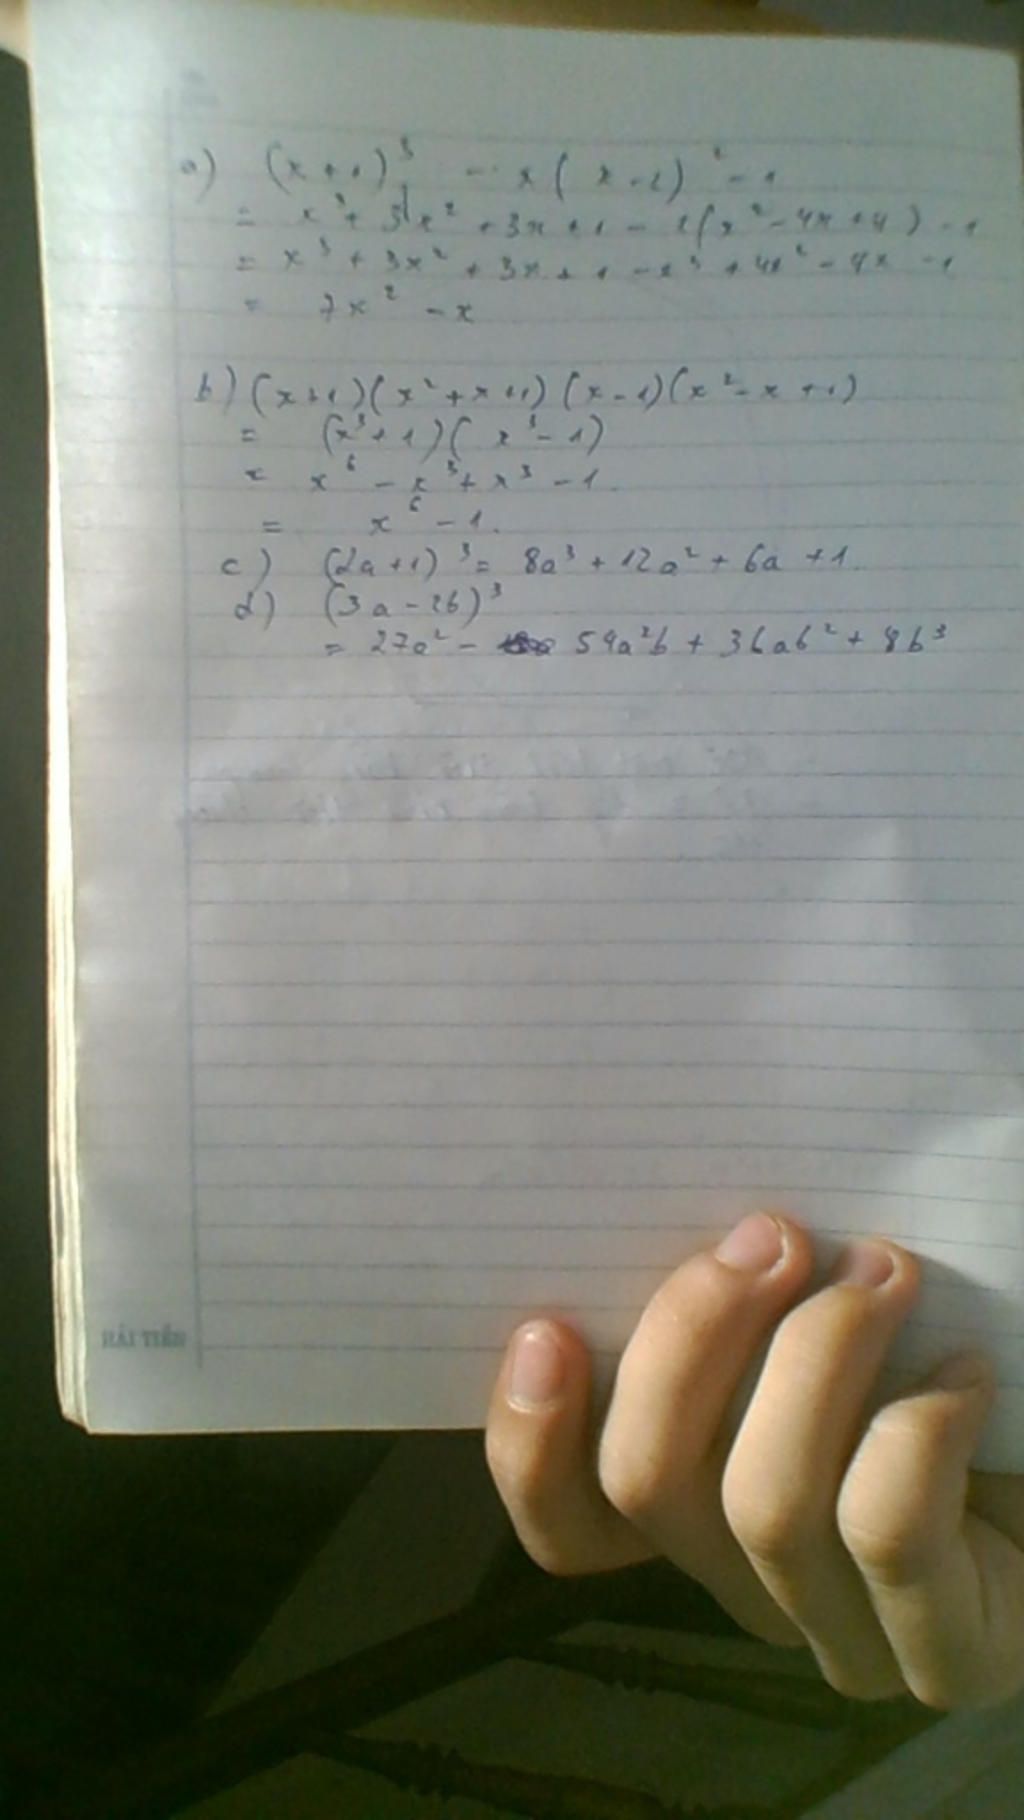 a) (x+1)³ - x(x-2)² - 1
= x³ + 3x² + 3x + 1 - x(x² - 4x + 4) - 1
= x³ + 3x² + 3x + 1 - x³ + 4x² - 4x - 1
= 7x² - x
b) (x+1)(x² + x + 1)(x - 1)(x² - x + 1)
= (x³ + 1)(x³ - 1)
= x⁶ - x³ + x³ - 1.
= x⁶ - 1.
c) (2a + 1)³ = 8a³ + 12a² + 6a + 1.
d) (3a - 2b)³
= 27a² - 54a²b + 36ab² + 8b³
HẢI TIẾN